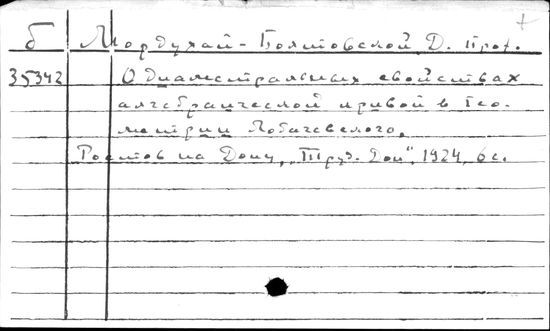 б Мордухай-Болтовской, Д. Проф.
35342 О диаметральных свойствах
алгебраической кривой в Гео-
метрии Лобачевского.
Ростов на Дону, „Труд. Дон“, 1924, 6 с.